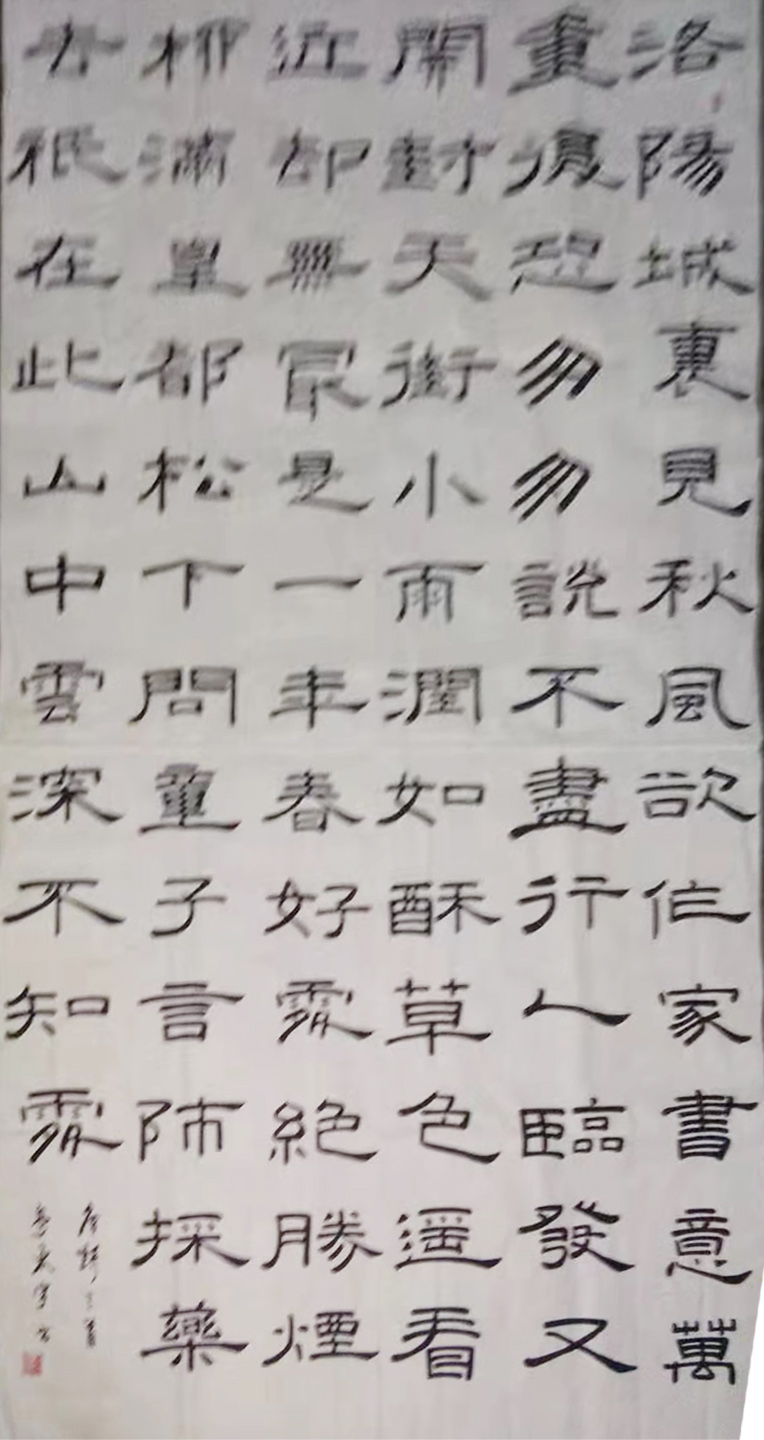 洛陽城裏見秋風欲作家書意萬
重復恐勿勿說不盡行人臨發又
開封天街小雨潤如酥草色遥看
近却無冣是一年春好處絕勝煙
柳滿皇都松下問童子言師採藥
去祇在此山中雲深不知處
唐詩三首